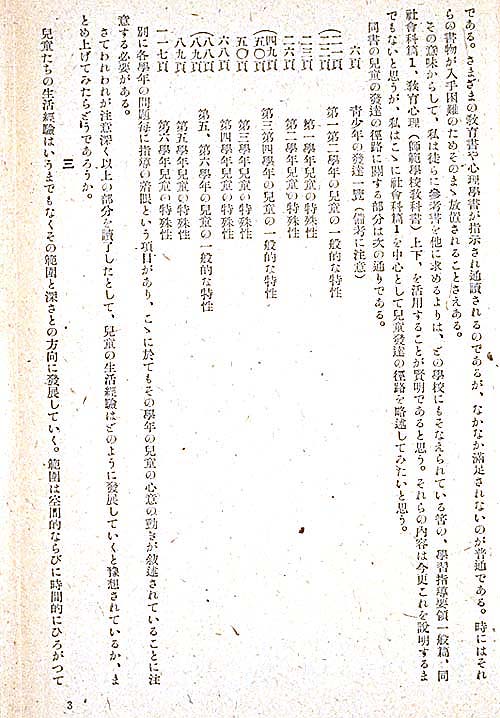 である。さまざまの敎育書や心理學書が指示され通讀されるのであるが、なかなか滿足されないのが普通である。時にはそれ
らの書物が入手困難のためそのまゝ放置されることさえある。
その意味からして、私は徒らに參考書を他に求めるよりは、どの學校にもそなえられている筈の、學習指導要領一般篇、同
社會科篇1、敎育心理（師範學校敎科書）上下、を活用することが賢明であると思う。それらの内容は今更これを說明するま
でもないと思うが、私はこゝに社會科篇1を中心として兒童發達の徑路を略述してみたいと思う。
同書の兒童の發達の徑路に關する部分は次の通りである。
六頁　靑少年の發達一覽（備考に注意）
（二一頁
（二二頁　第一第二學年の兒童の一般的な特性
二三頁　第一學年兒童の特殊性
二六頁　第二學年兒童の特殊性
（四九頁
（五〇頁　第三第四學年の兒童の一般的な特性
五〇頁　第三學年兒童の特殊性
六八頁　第四學年兒童の特殊性
（八八頁
（八九頁　第五、第六學年の兒童の一般的な特性
八九頁　第五學年兒童の特殊性
一一七頁　第六學年兒童の特殊性
別に各學年の問題每に指導の着眼という項目があり、こゝに於てもその學年の兒童の心意の動きが敘述されていることに注
意する必要がある。
さてわれわれが注意深く以上の部分を讀了したとして、兒童の生活經驗はどのように發展していくと豫想されているか、ま
とめ上げてみたらどうであろうか。
三
兒童たちの生活經驗はいうまでもなくその範圍と深さとの方向に發展していく。範圍は空間的ならびに時間的にひろがつて
3